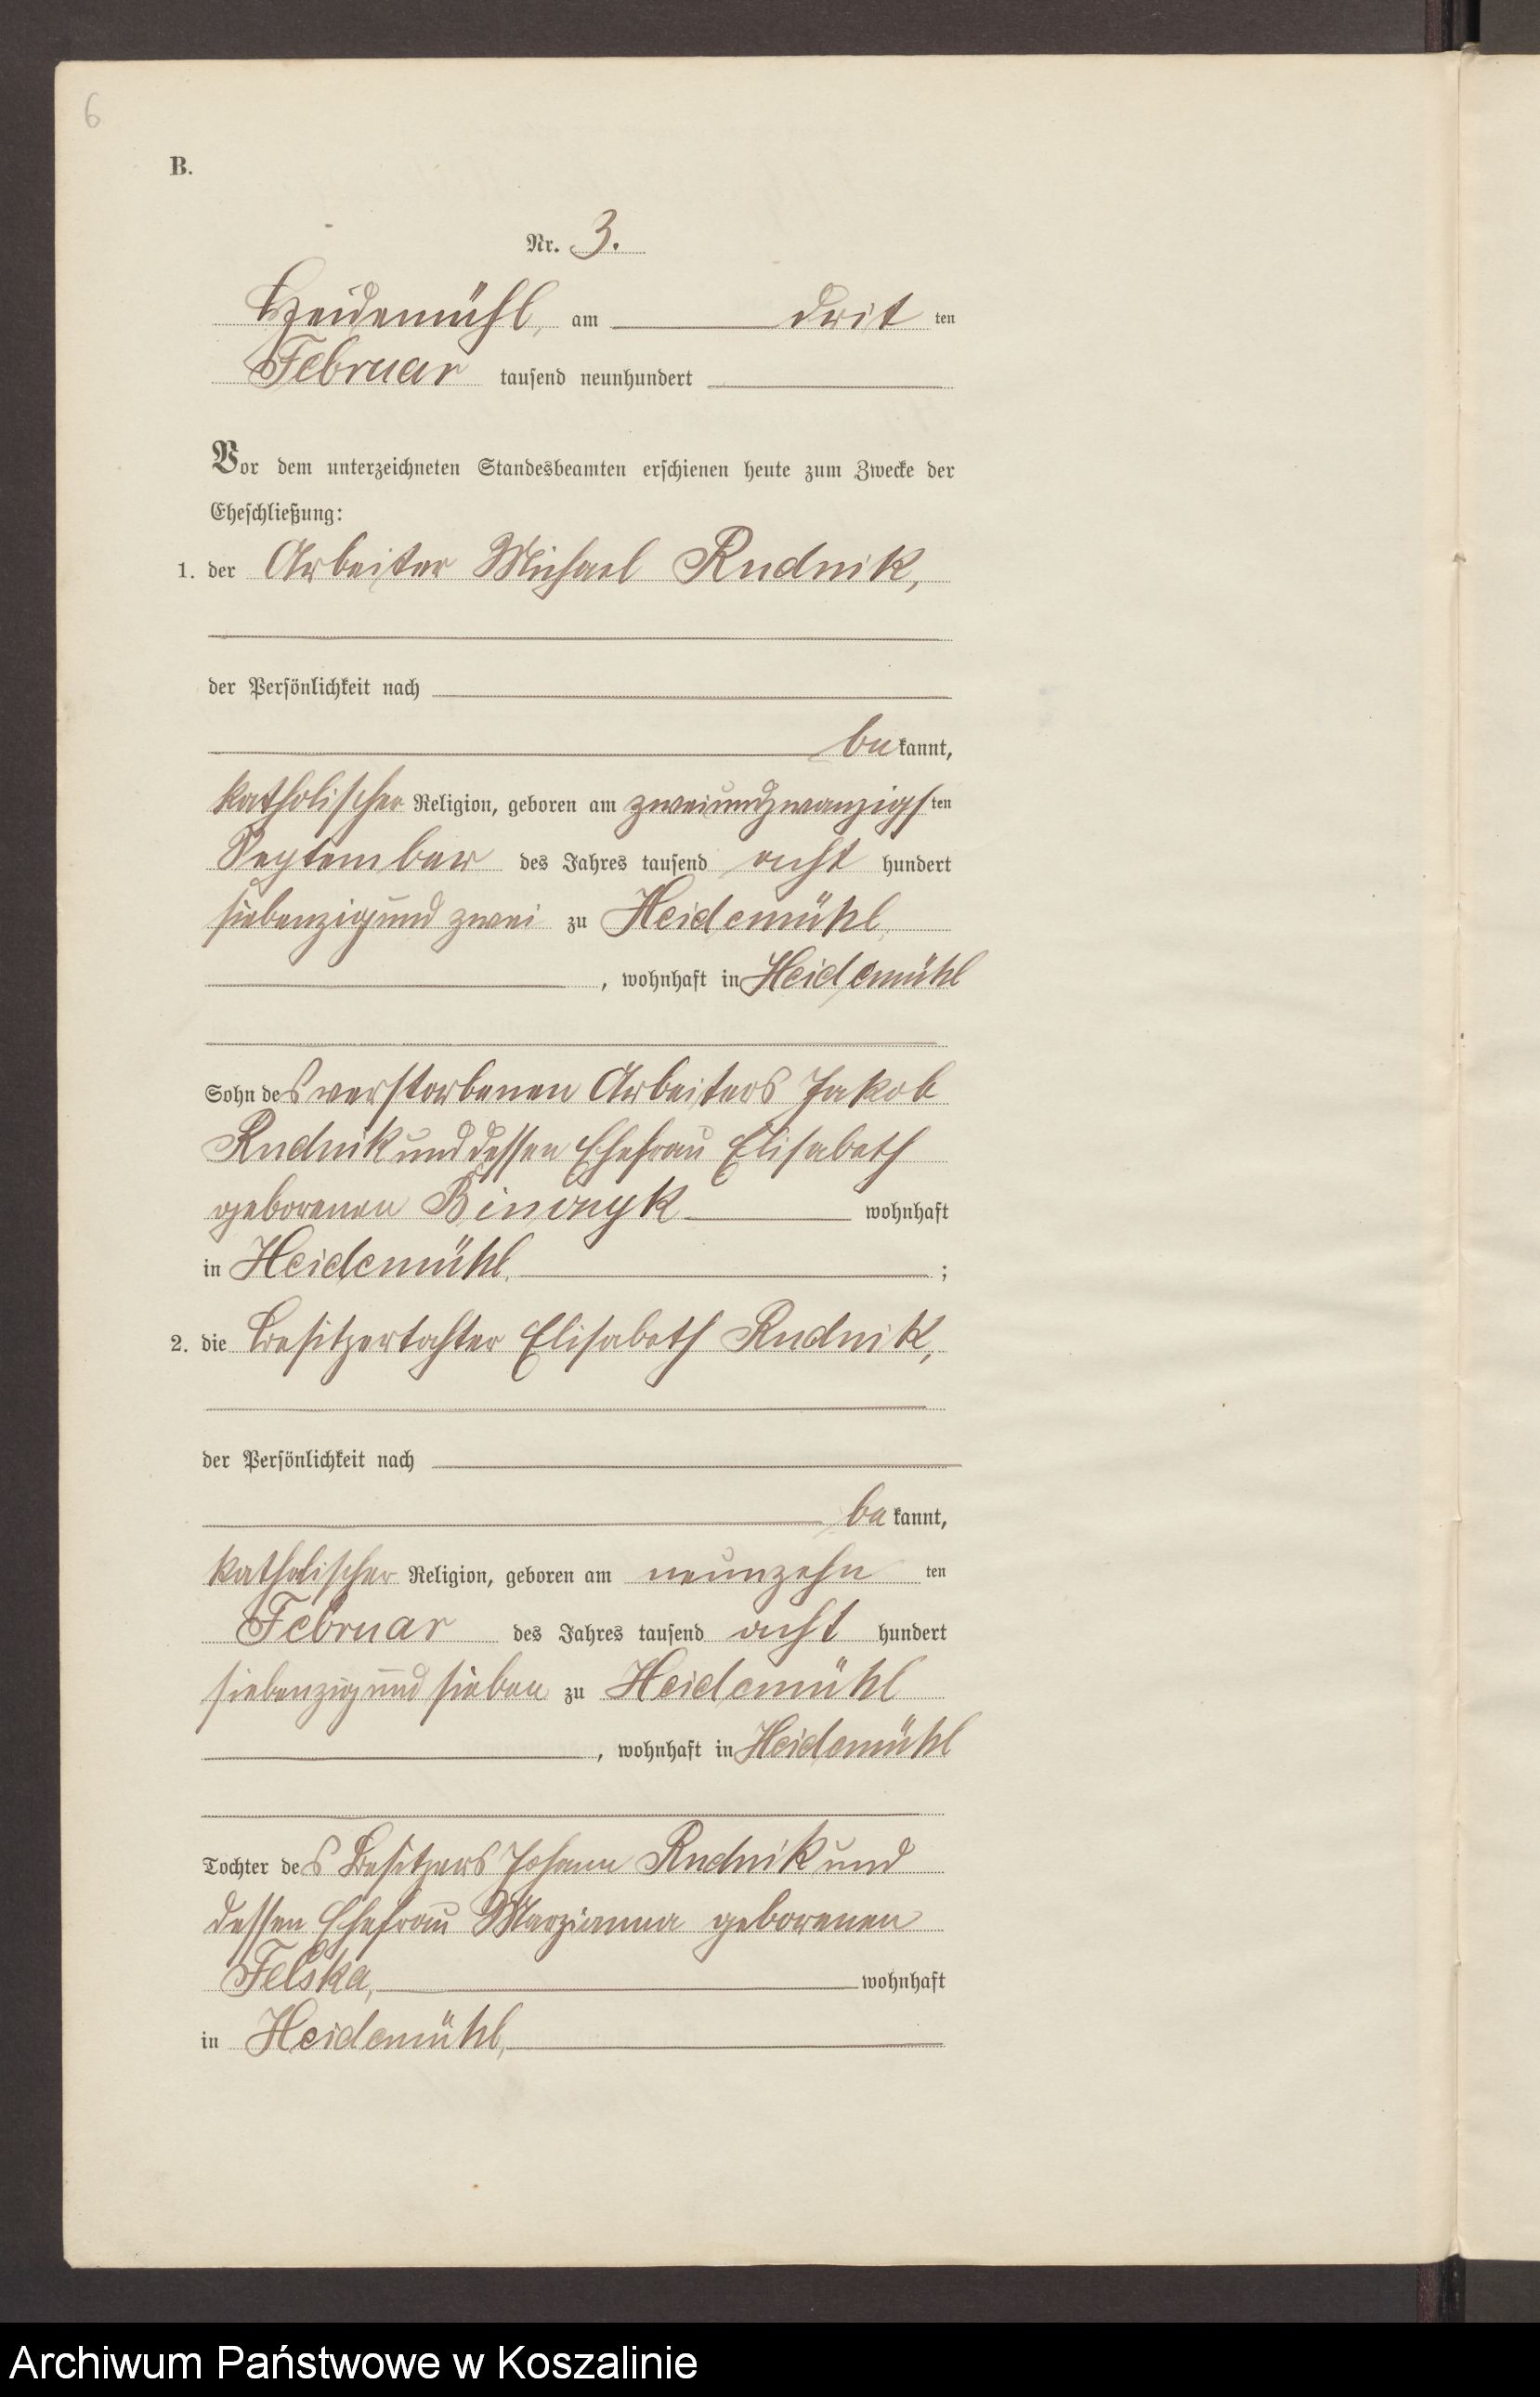 6
B.
Nr. 3.
Heidemühl, am dritten
Februar tausend neunhundert
Vor dem unterzeichneten Standesbeamten erschienen heute zum Zwecke der
Eheschließung:
1. der Arbeiter Michael Rudnik,
der Persönlichkeit nach
bekannt,
katholischer Religion, geboren am zweiundzwanzigsten
September des Jahres tausend acht hundert
siebenzig und zwei zu Heidemühl,
, wohnhaft in Heidemühl
Sohn des verstorbenen Arbeiters Jakob
Rudnik und dessen Ehefrau Elisabeth
geborenen Binczyk wohnhaft
in Heidemühl, ;
2. die Besitzertochter Elisabeth Rudnik,
der Persönlichkeit nach
bekannt,
katholischer Religion, geboren am neunzehnten
Februar des Jahres tausend acht hundert
siebenzig und sieben zu Heidemühl
, wohnhaft in Heidemühl
Tochter des Besitzers Johann Rudnik und
dessen Ehefrau Marzianna geborenen
Felska, wohnhaft
in Heidemühl,
Archiwum Państwowe w Koszalinie